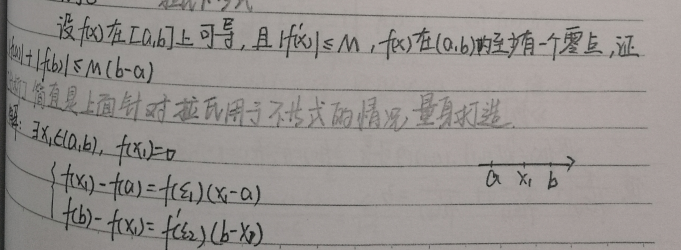 设f(x)在[a,b]上可导,且|f'(x)|≤M,f(x)在(a,b)内至少有一个零点,证
|f(a)|+|f(b)|≤M(b-a)
简直是上面针对拉氏用于不等式的情况,量身打造.
解: ∃x₁∈(a,b), f(x₁)=0
f(x₁)-f(a)=f(ξ₁)(x₁-a)
a x₁ b
f(b)-f(x₁)=f'(ξ₂)(b-x₁)